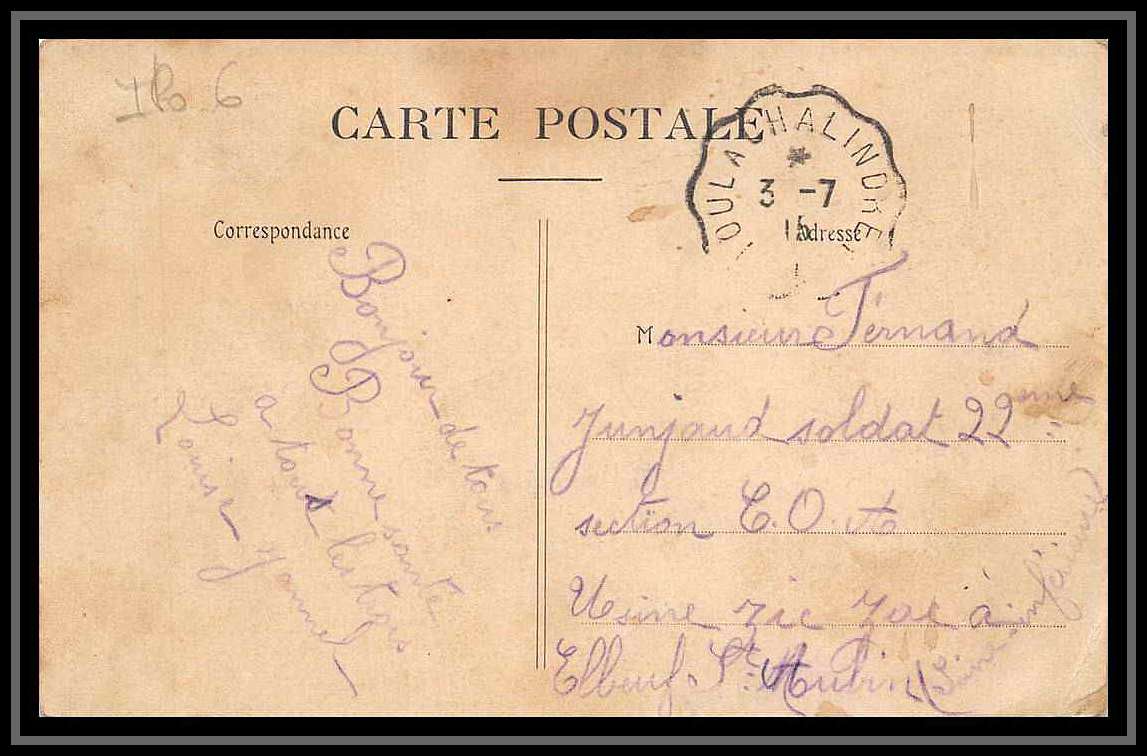 CARTE POSTALE
OULACHALINDRE
3 -7
15
Correspondance
Adresse
Bonjour de tous
Bonne santé
a tous les trois
Louise
Monsieur Fernand
Junjaud soldat 22eme
section C.O.A
Usine Zic Zac à
Elbeuf St. Aubin (Seine inférieure)